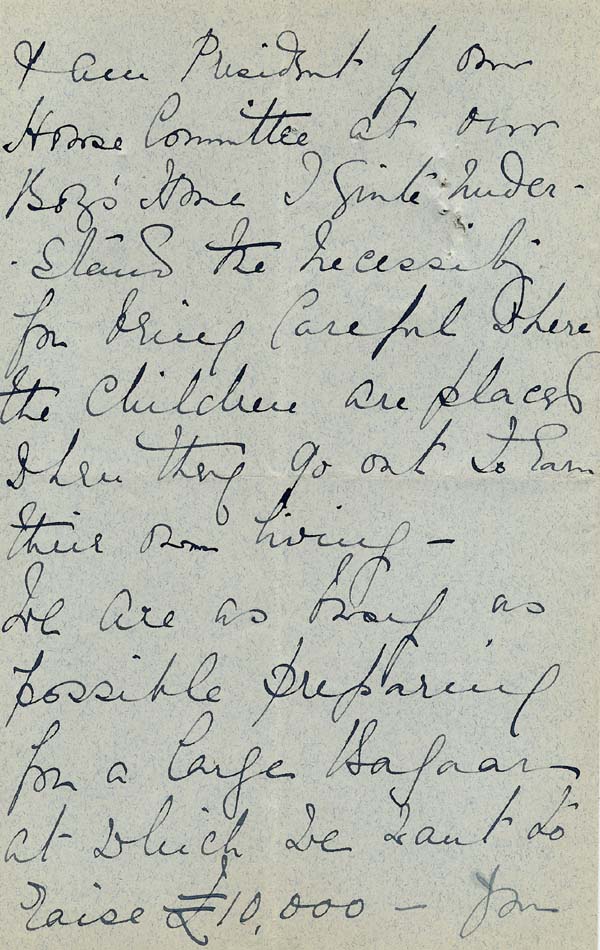 I am President of our
House Committee at our
Boy's Home I quite under-
-stand the necessity
for being careful where
the children are placed
when they go out to earn
their own living -
We are as busy as
possible preparing
for a large Bazaar
at which we want to
raise £10,000 - for